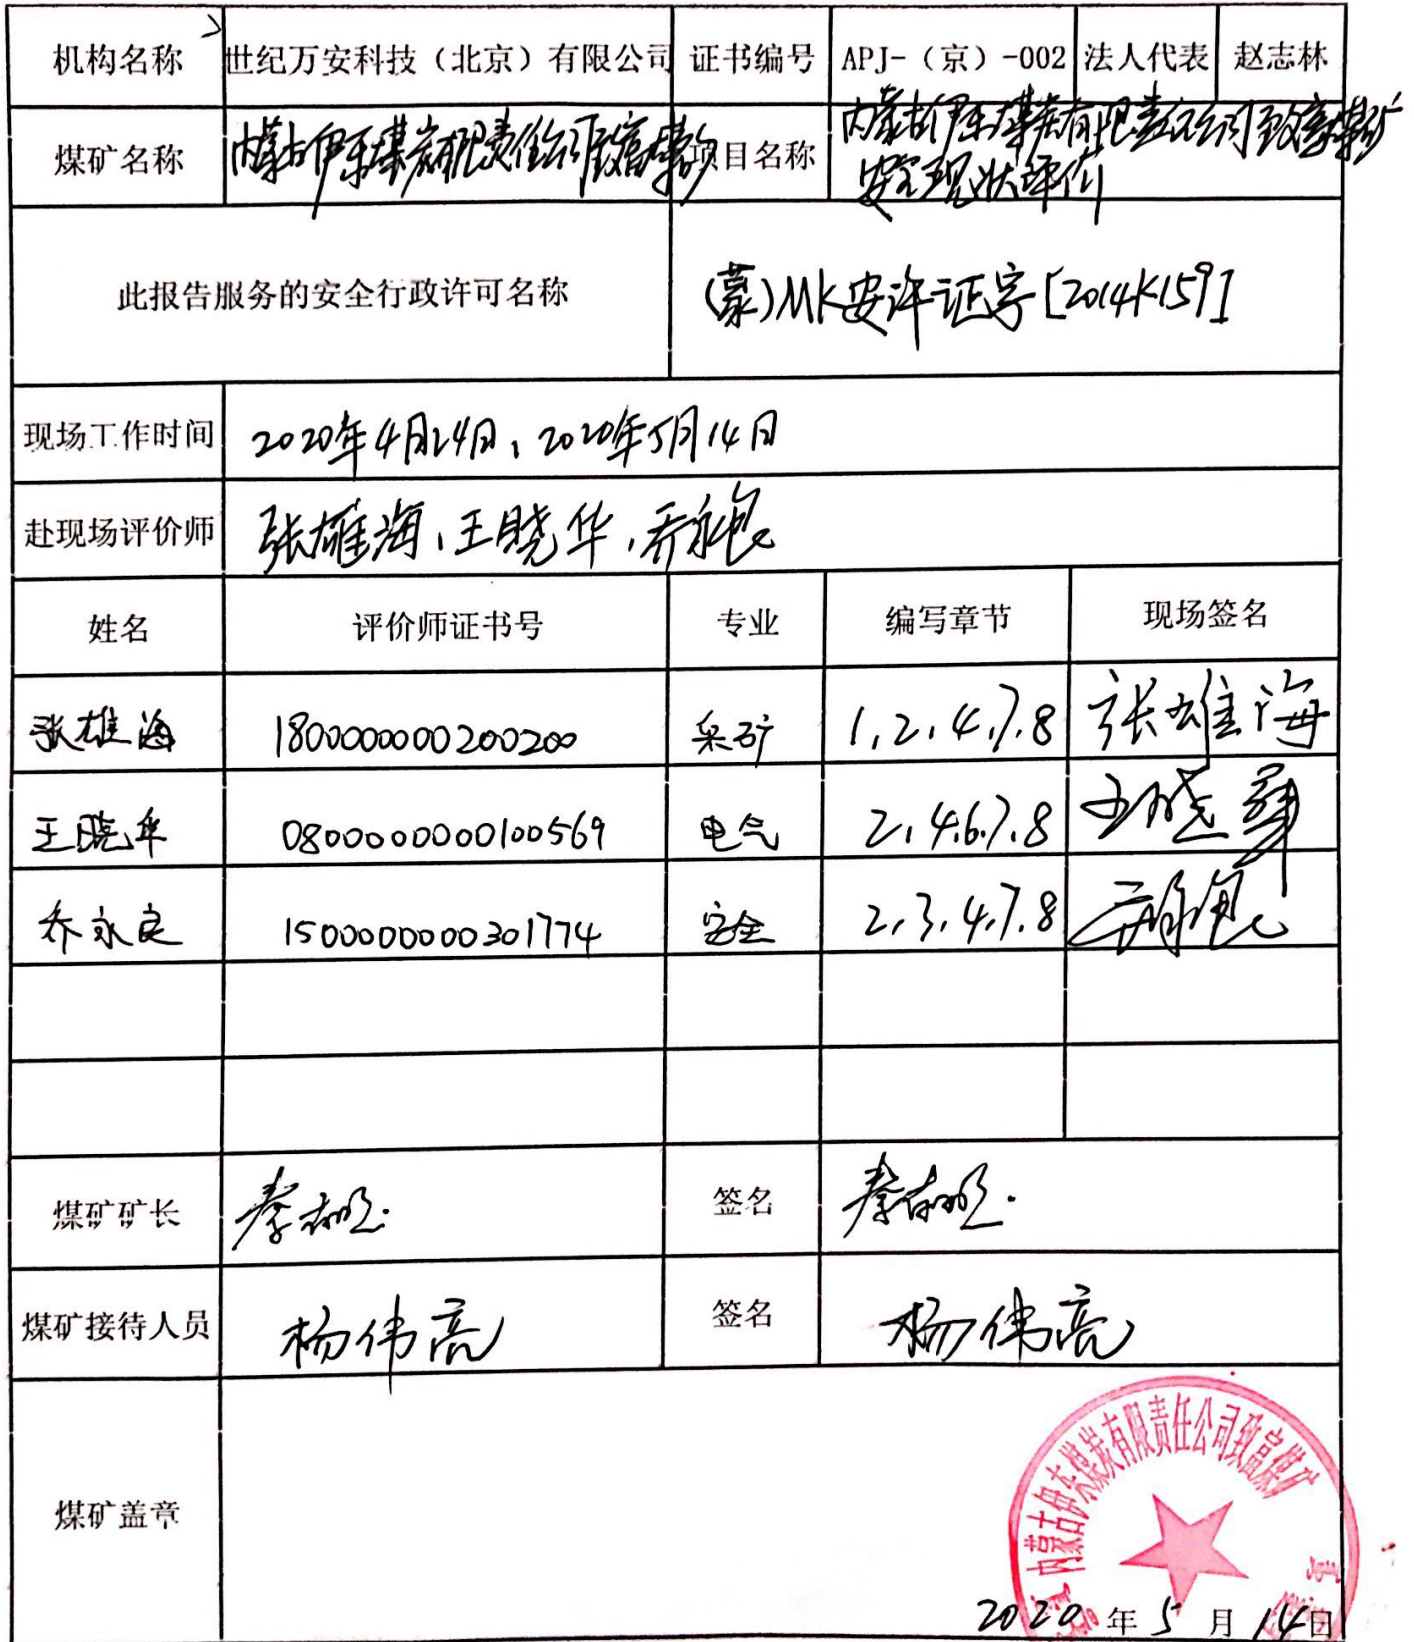 机构名称 世纪万安科技（北京）有限公司 证书编号 APJ-（京）-002 法人代表 赵志林
煤矿名称 内蒙古伊东煤炭有限责任公司致富煤矿 项目名称 内蒙古伊东煤炭有限责任公司致富煤矿
安全现状评价
此报告服务的安全行政许可名称 (蒙)MK安许证字[2014K159]
现场工作时间 2020年4月24日、2020年5月14日
赴现场评价师 张雄海、王晓华、乔永良
姓名 评价师证书号 专业 编写章节 现场签名
张雄海 1800000000200200 采矿 1,2,4,7,8 张雄海
王晓华 0800000000100569 电气 2,4,6,7,8 王晓华
乔永良 1500000000301774 安全 2,3,4,7,8 乔永良
煤矿矿长 签名
煤矿接待人员 杨伟亮 签名 杨伟亮
煤矿盖章
内蒙古伊东煤炭有限责任公司致富煤矿
2020年5月14日